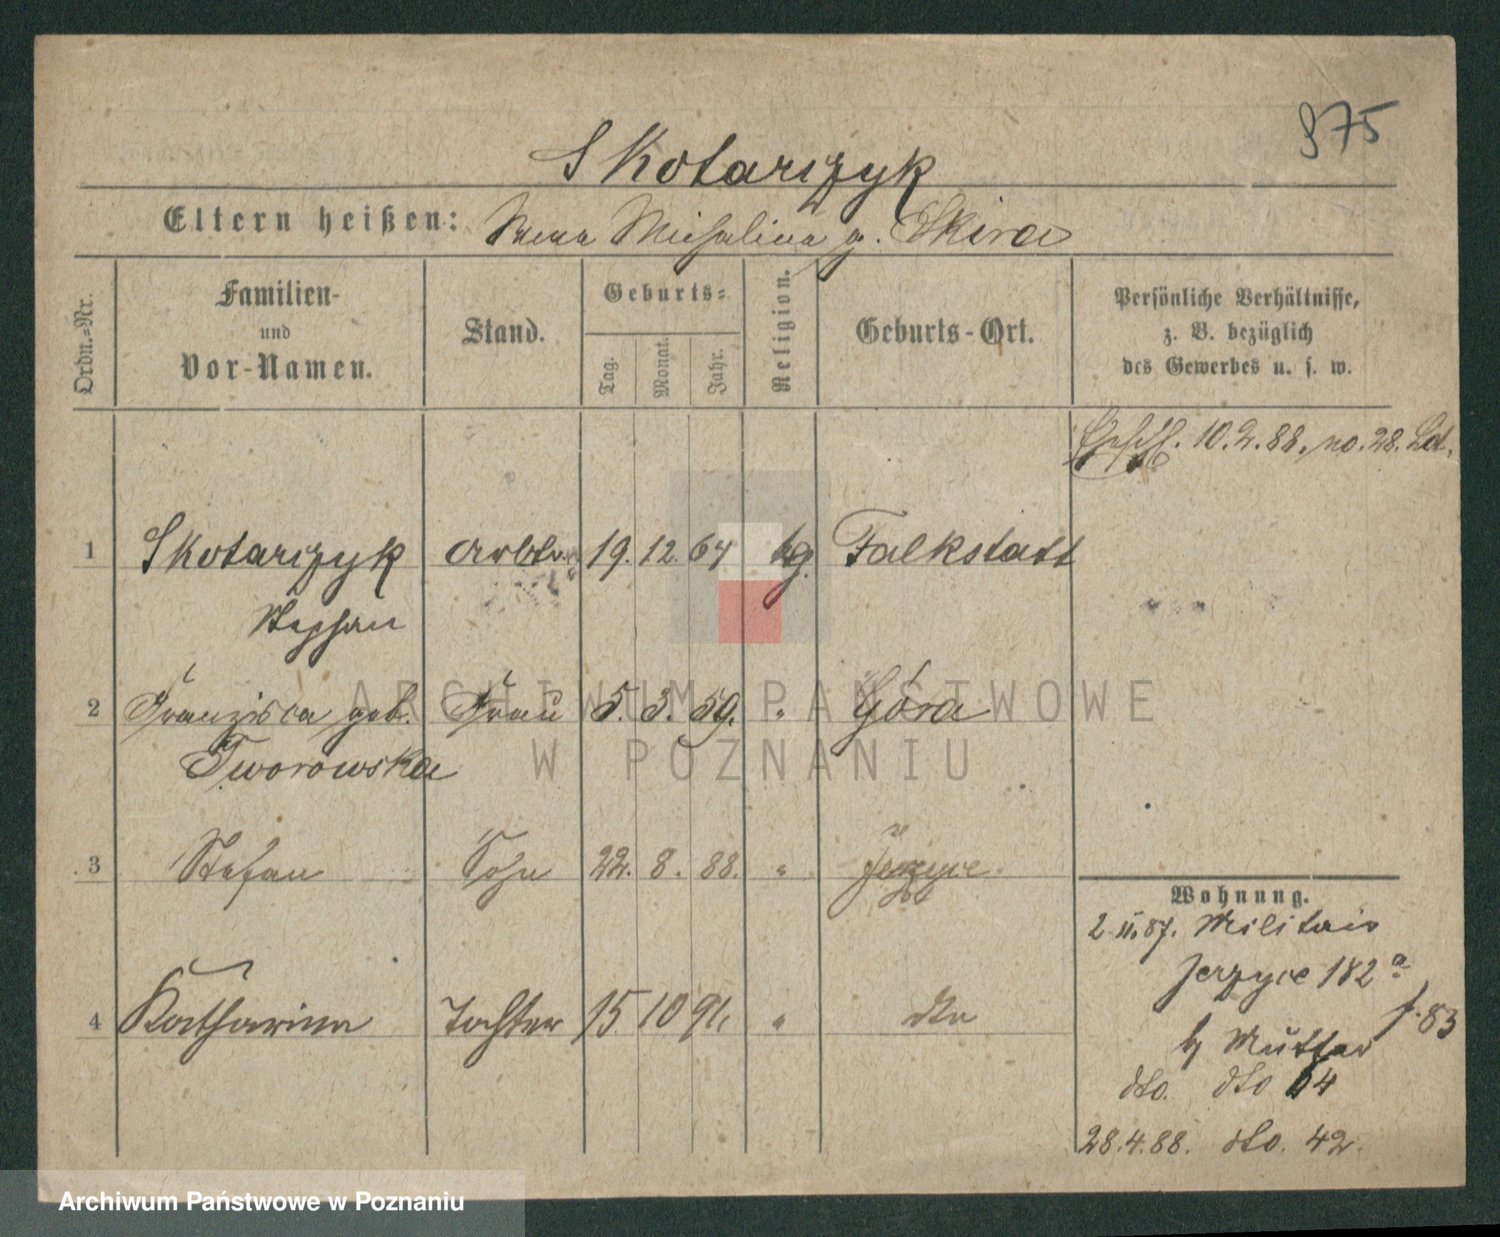 975
Skotarczyk
Eltern heißen: Michalina g. Skira
Ordn.-Nr.
Familien-
und
Vor-Namen.
Stand.
Geburts-
Tag.
Monat.
Jahr.
Religion.
Geburts-Ort.
Persönliche Verhältnisse,
z. B. bezüglich
des Gewerbes u. s. w.
10.2.88. no. 28.
1 Skotarczyk Arbtr. 19. 12. 64 kg. Falkstatt
Stephan
2 Franzisca geb. Frau 5. 3. 59. " Góra
Tworowska
3 Stefan Sohn 22. 8. 88. " Jerzyce
4 Katharina Tochter 15 10 91. " dto
Wohnung.
2.11.87. Militair
Jerzyce 182 a
f. 83
b/ Mutter
dto. dto 64
28.4.88. dto. 42.
ARCHIWUM PAŃSTWOWE
W POZNANIU
Archiwum Państwowe w Poznaniu